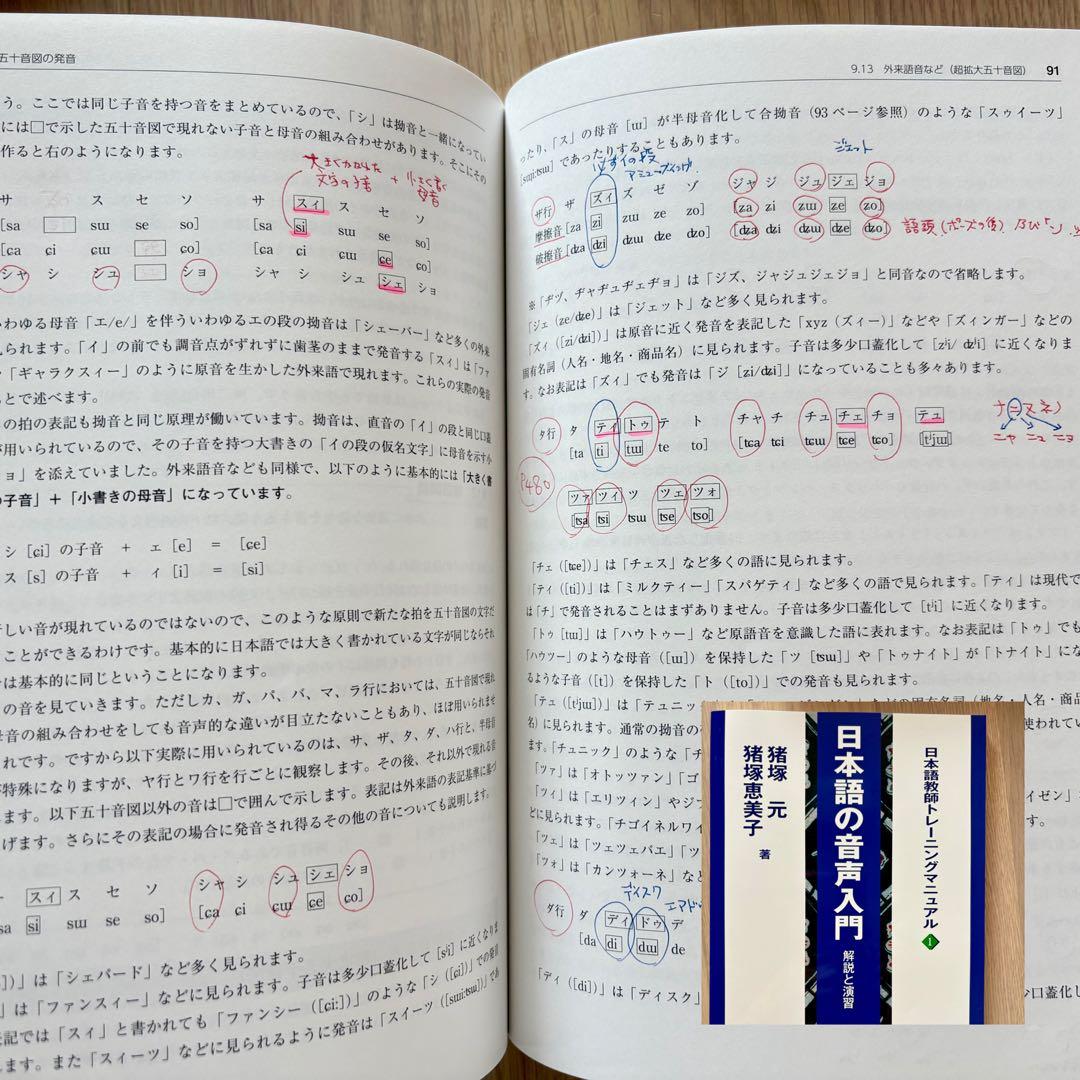 五十音図の発音
う。ここでは同じ子音を持つ音をまとめているので、「シ」は拗音と一緒になってい
には□で示した五十音図で現れない子音と母音の組み合わせがあります。そこにその
作ると右のようになります。
大きくかかれた文字の子音 + 小さく書く母音
サ ス セ ソ サ スィ ス セ ソ
[sa sɯ se so] [sa si sɯ se so]
[ɕa ɕi ɕɯ ɕo] [ɕa ɕi ɕɯ ɕe ɕo]
シャ シ シュ ショ シャ シ シュ シェ ショ
いわゆる母音「エ/e/」を伴ういわゆるエの段の拗音は「シェーバー」など多くの外来
られます。「イ」の前でも調音点がずれずに歯茎のままで発音する「スィ」は「ファ
「ギャラクスィー」のように原音を生かした外来語で現れます。これらの実際の発音
とで述べます。
の拍の表記も拗音と同じ原理が働いています。拗音は、直音の「イ」の段と同じ口蓋
が用いられているので、その子音を持つ大書きの「イの段の仮名文字」に母音を示す小
ョ」を添えていました。外来語音なども同様で、以下のように基本的には「大きく書
の子音」+「小書きの母音」になっています。
シ [ɕi] の子音 + エ [e] = [ɕe]
ス [s] の子音 + イ [i] = [si]
しい音が現れているのではないので、このような原則で新たな拍を五十音図の文字だ
ことができるわけです。基本的に日本語では大きく書かれている文字が同じならそれ
は基本的に同じということになります。
の音を見ていきます。ただしカ、ガ、パ、バ、マ、ラ行においては、五十音図で現れ
母音の組み合わせをしても音声的な違いが目立たないこともあり、ほぼ用いられませ
れです。ですから以下実際に用いられているのは、サ、ザ、タ、ダ、ハ行と、半母音
特殊になりますが、ヤ行とワ行を行ごとに観察します。その後、それ以外で現れる音
ます。以下五十音図以外の音は□で囲んで示します。表記は外来語の表記基準に基づ
げます。さらにその表記の場合に発音され得るその他の音についても説明します。
スィ ス セ ソ シャ シ シュ シェ ショ
sa si sɯ se so] [ɕa ɕi ɕɯ ɕe ɕo]
])」は「シェパード」など多く見られます。
」は「ファンスィー」などに見られます。子音は多少口蓋化して [sʲi] に近くなりま
表記では「スィ」と書かれても「ファンシー([ɕiː])」のような「シ([ɕi])」での発音
ります。また「スィーツ」などに見られるように発音は「スイーツ([sɯiːtsɯ])」であ
9.13 外来語音など(超拡大五十音図) 91
ったり、「ス」の母音 [ɯ] が半母音化して合拗音(93ページ参照)のような「スゥイーツ」
[sɰiːtsɯ] であったりすることもあります。
必ずイの段
アミューズィング
ジェット
ザ行 ザ ズィ ズ ゼ ゾ ジャ ジ ジュ ジェ ジョ
摩擦音 [za zi zɯ ze zo] [ʑa ʑi ʑɯ ʑe ʑo]
破擦音 [dza dzi dzɯ dze dzo] [dʑa dʑi dʑɯ dʑe dʑo] 語頭(ポーズの後)及び「ン」
※「ヂヅ、ヂャヂュヂェヂョ」は「ジズ、ジャジュジェジョ」と同音なので省略します。
「ジェ(ʑe/dʑe)」は「ジェット」など多く見られます。
「ズィ([zi/dzi])」は原音に近く発音を表記した「xyz(ズィー)」などや「ズィンガー」などの
固有名詞(人名・地名・商品名)に見られます。子音は多少口蓋化して [zʲi/ dzʲi] に近くなりま
す。なお表記は「ズィ」でも発音は「ジ [ʑi/dʑi]」になっていることも多々あります。
タ行 タ ティ トゥ テ ト チャ チ チュ チェ チョ テュ
[ta ti tɯ te to] [tɕa tɕi tɕɯ tɕe tɕo] [tʲjɯ]
ナニヌネノ
ニャ ニュ ニョ
P480
ツァ ツィ ツ ツェ ツォ
[tsa tsi tsɯ tse tso]
「チェ([tɕe])」は「チェス」など多くの語に見られます。
「ティ([ti])」は「ミルクティー」「スパゲティ」など多くの語で見られます。「ティ」は現代で
は「チ」で発音されることはまずありません。子音は多少口蓋化して [tʲi] に近くなります。
「トゥ [tɯ]」は「ハウトゥー」など原語音を意識した語に表れます。なお表記は「トゥ」でも
「ハウツー」のような母音([ɯ])を保持した「ツ [tsɯ]」や「トゥナイト」が「トナイト」にな
るような子音([t])を保持した「ト([to])」での発音も見られます。
「テュ([tʲjɯ])」は「テュニッ
名)に見られます。通常の拗音の
ます。「チュニック」のような「チ
「ツァ」は「オトッツァン」「ゴ
「ツィ」は「エリツィン」やジ
どに見られます。「チゴイネルワイ
「ツェ」は「ツェツェバエ」「ツ
「ツォ」は「カンツォーネ」など
ディスク
エアド
ダ行 ダ ディ ドゥ デ
[da di dɯ de
「ディ([di])」は「ディスク」
少口蓋化し
日本語教師トレーニングマニュアル 1
日本語の音声入門
解説と演習
猪塚 元
猪塚恵美子
著